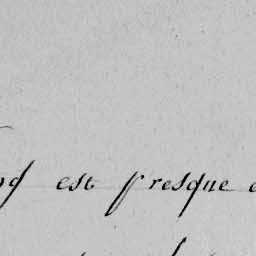 est presque